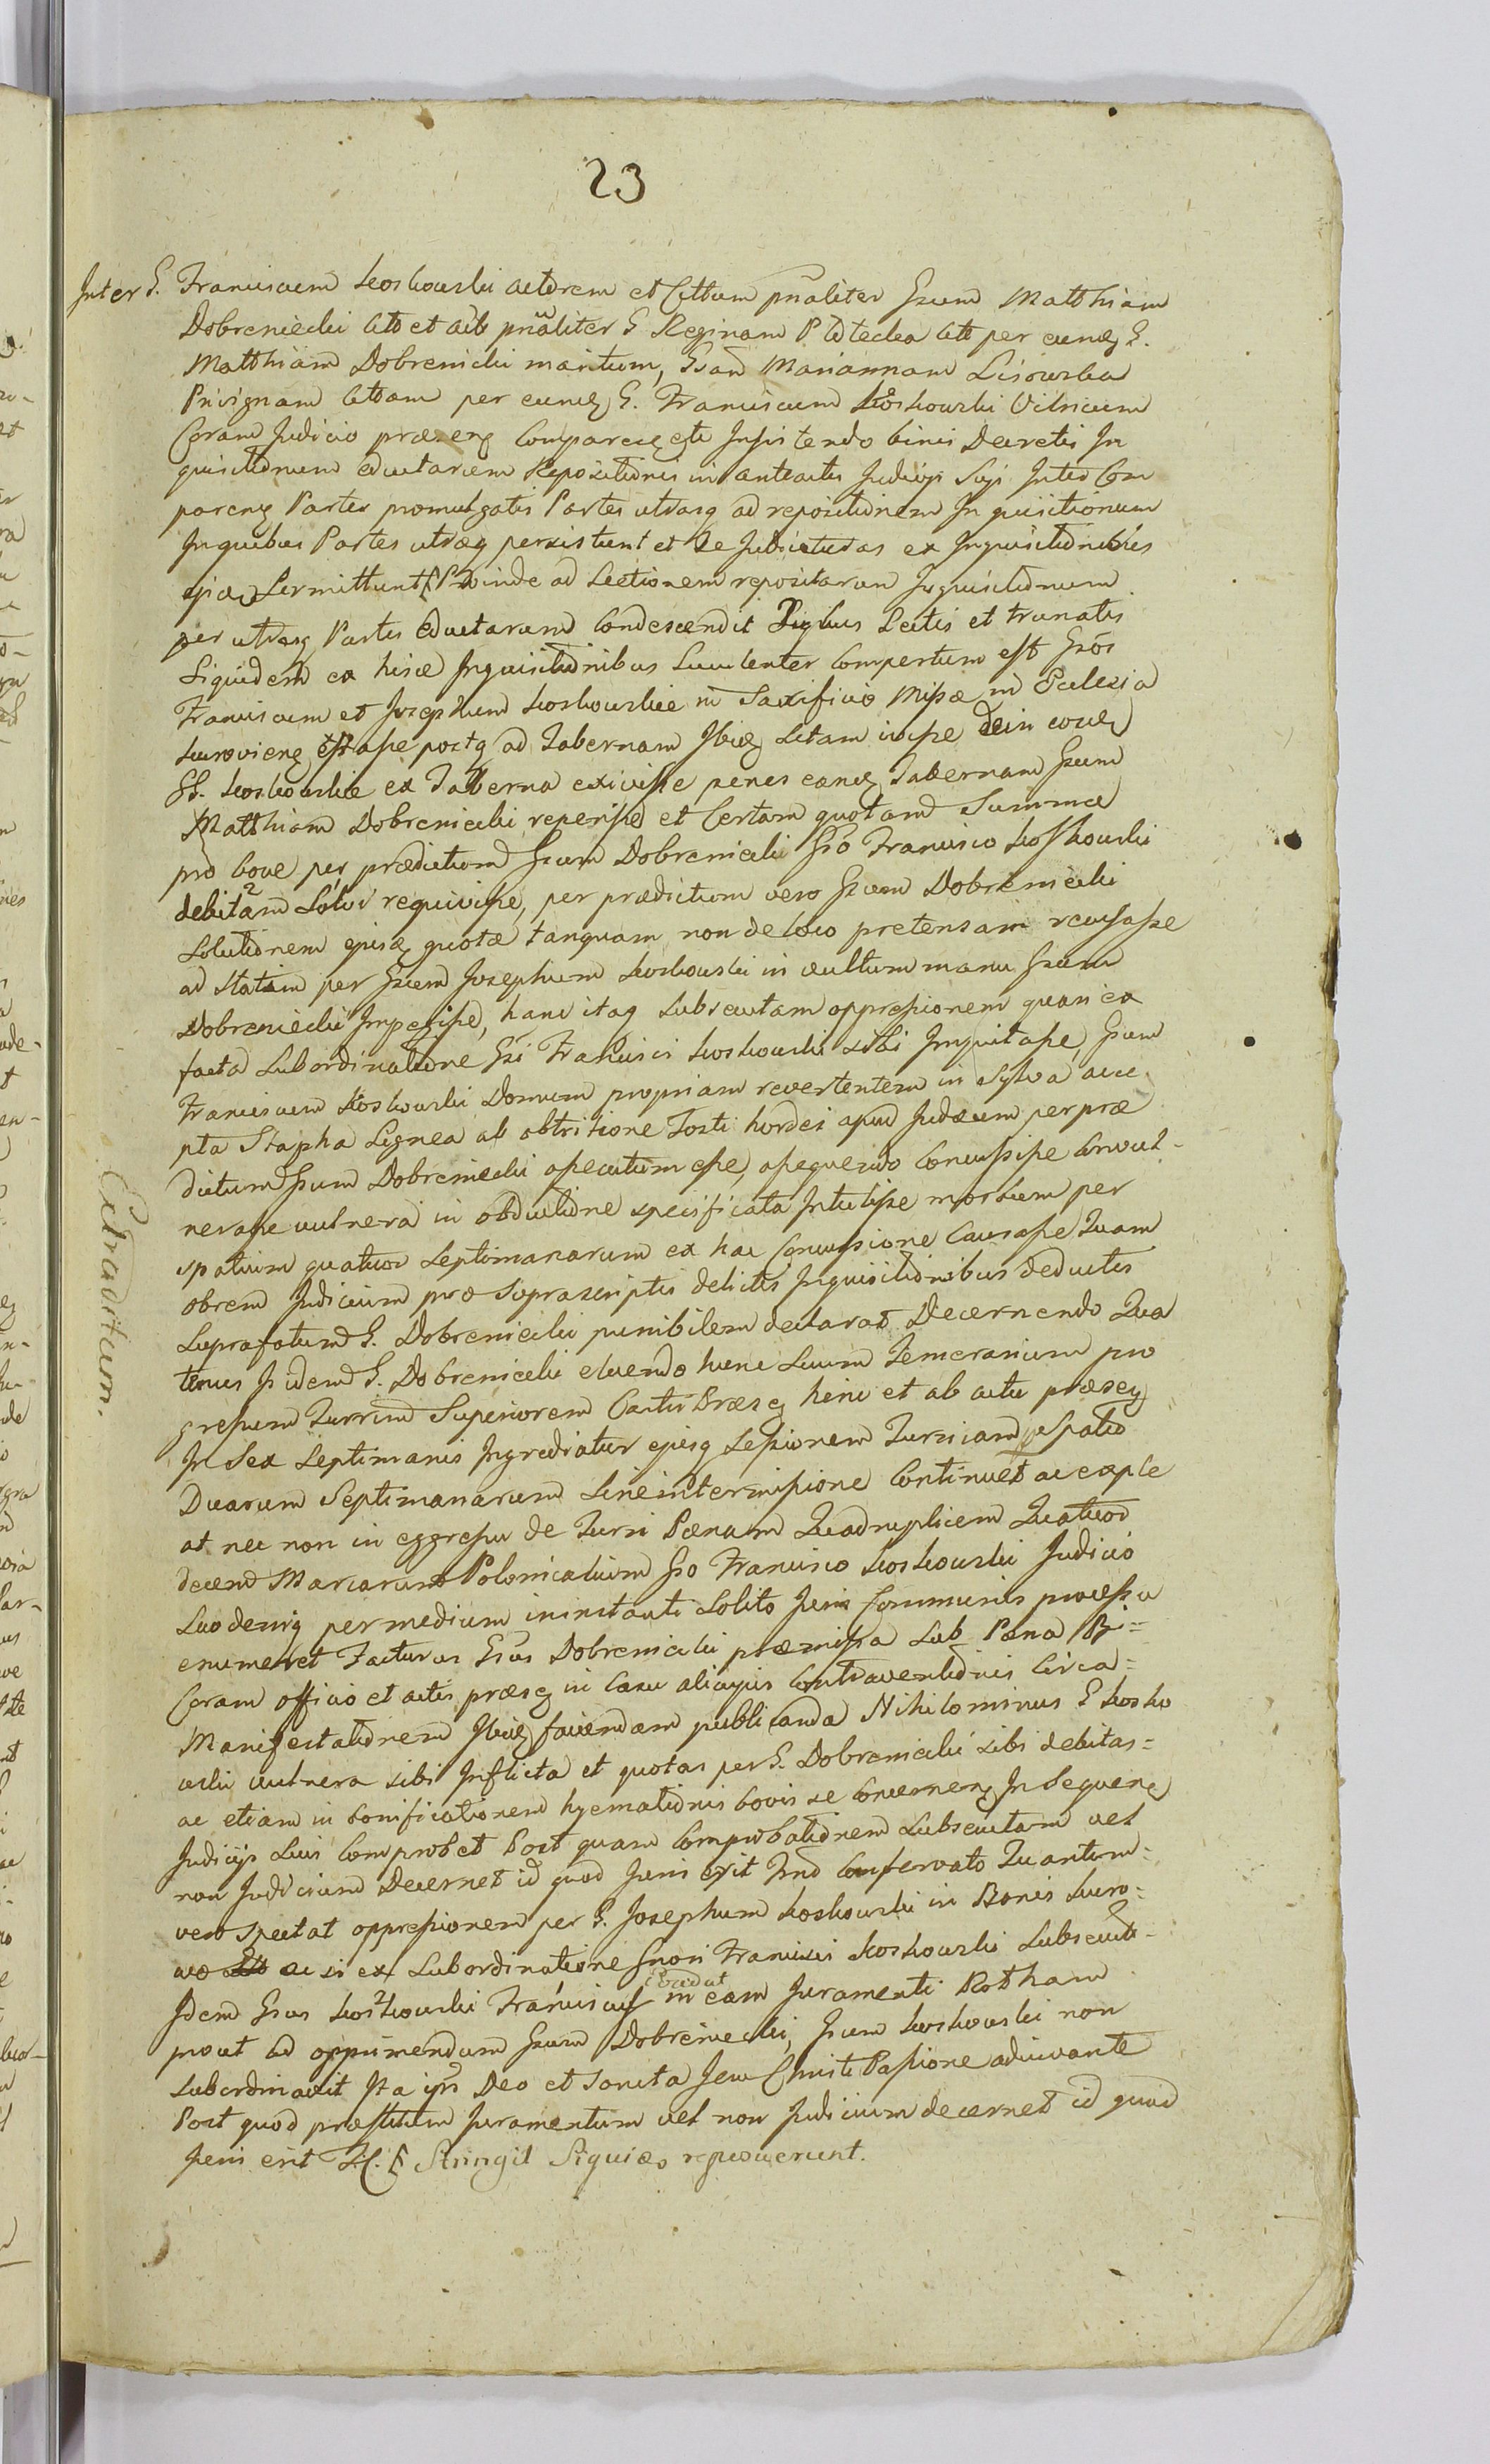 23
Inter G. Franciscum Koskowski actorem et Cittum pnaliter Gsum Matthiam
Dobreniecki citt et act pnaliter G. Reginam P citt per eund G.
Matthiam Dobreniecki maritum, Gsam Mariannam Lisowska
Privignam cittam per eund G. Franciscum Koskowski Vitricum
Coram Judicio præseng Compareng Insistendo binis Decretis In
quisitionum eductarum Repositionis in anteactis Judicijs Inter Com
pareng Partes promulgatis Partes utrasq ad repositionem Inquisitionum
In quibus Partes utræq persistunt et se Judicaturas ex Inquisitionibus
Permittunt Proinde ad Lectionem repositarum Inquisitionum
per utrasq Partes Eductarum Condescendit Lectis et trunatis
Siquidem ex hisce Inquisitionibus Luculenter Compertum est Gsos
Franciscum et Josephum Koskowskie in Sacrificio Missæ in Ecclesia
Kurovieng postq ad Tabernam Ibid Sitam ivisse dein eosd
GG. Koskowskie ex Taberna exivisse penes eand Tabernam Gsum
Matthiam Dobreniecki reperisse et Certam quotam Summæ
pro bove per prædictum Gsum Dobreniecki Gso Francisco Koskowski
debitam Solvi requivisse, per prædictum vero Gsum Dobreniecki
Solutionem ejusq quotæ tanquam non de loco pretensam recusasse
ad statim per Gsum Josephum Koskowski in vultum manu Gsum
Dobreniecki Impegisse, hanc itaq Subsecutam oppressionem quasi ex
facta Subordinatione Gsi Francisci Koskowski sibi Imputasse, Gsum
Franciscum Koskowski Domum propriam revertentem in Sylva acce
pta Stapha Lignea ab obtritione Tosti hordei apud Judæum per præ
dictum Gsum Dobreniecki assecutum esse, assequendo Concussisse Convul-
nerasse vulnera in obductione specificata Intulisse morbum per
spatium quatuor Septimanarum ex hac Concussione Causasse Quam
obrem Judicium præ Suprascriptis delictis Inquisitionibus deductis
Suprafatum G. Dobreniecki punibilem declarat Decernendo Qua
tenus Idem G. Dobreniecki eluendo hunc Suum Temerarium pro
gressum Turrim Superiorem Castri Præsg hinc et ab actu præseg
In Sex Septimanis Ingrediatur ejusq Sessionem Turri iam Spatio
Duarum Septimanarum Sine intermissione Continuet ac exple
at nec non in eggressu de Turri Pænam Quadruplicem Quatuor
decem Marcarum Polonicalium Gso Francisco Koskowski Judicio
Suo deniq per medium in instanti Solito Juris Communis processu
enumeret Facturus Gsus Dobreniecki præmissa Sub Pæna
Coram officio et actis præsg in Casu alicujus Contraventionis Circa=
Manifestationem Ibid faciendam publicanda Nihilominus G Kosko
wski vulnera sibi Inflicta et quotas per G. Dobreniecki sibi debitas=
ac etiam in bonificationem hyemationis bovis se concernen In Sequeng
Judicijs Suis Comprobet Post quam Comprobationem Subsecutam vel
non Judicium Decernet id quod Juris erit Conservato Quantum=
vero Spectat oppressionem per G. Josephum Koskowski in Bonis Kuro=
wo ac si ex Subordinatione Gnosi Francisci Koskowski Subsecut-
Idem Gsus Koskowski Franciscus Evadat in eam Juramenti Rotham
prout ad opprimendum Gsum Dobreniecki, Gsum Koskowski non
Subordinavit Ita ipsi Deo et Sancta Jesu Christi Passione adiuvante
Post quod præstitum Juramentum vel non Judicium decernet id quod
Juris erit
Extraditum.